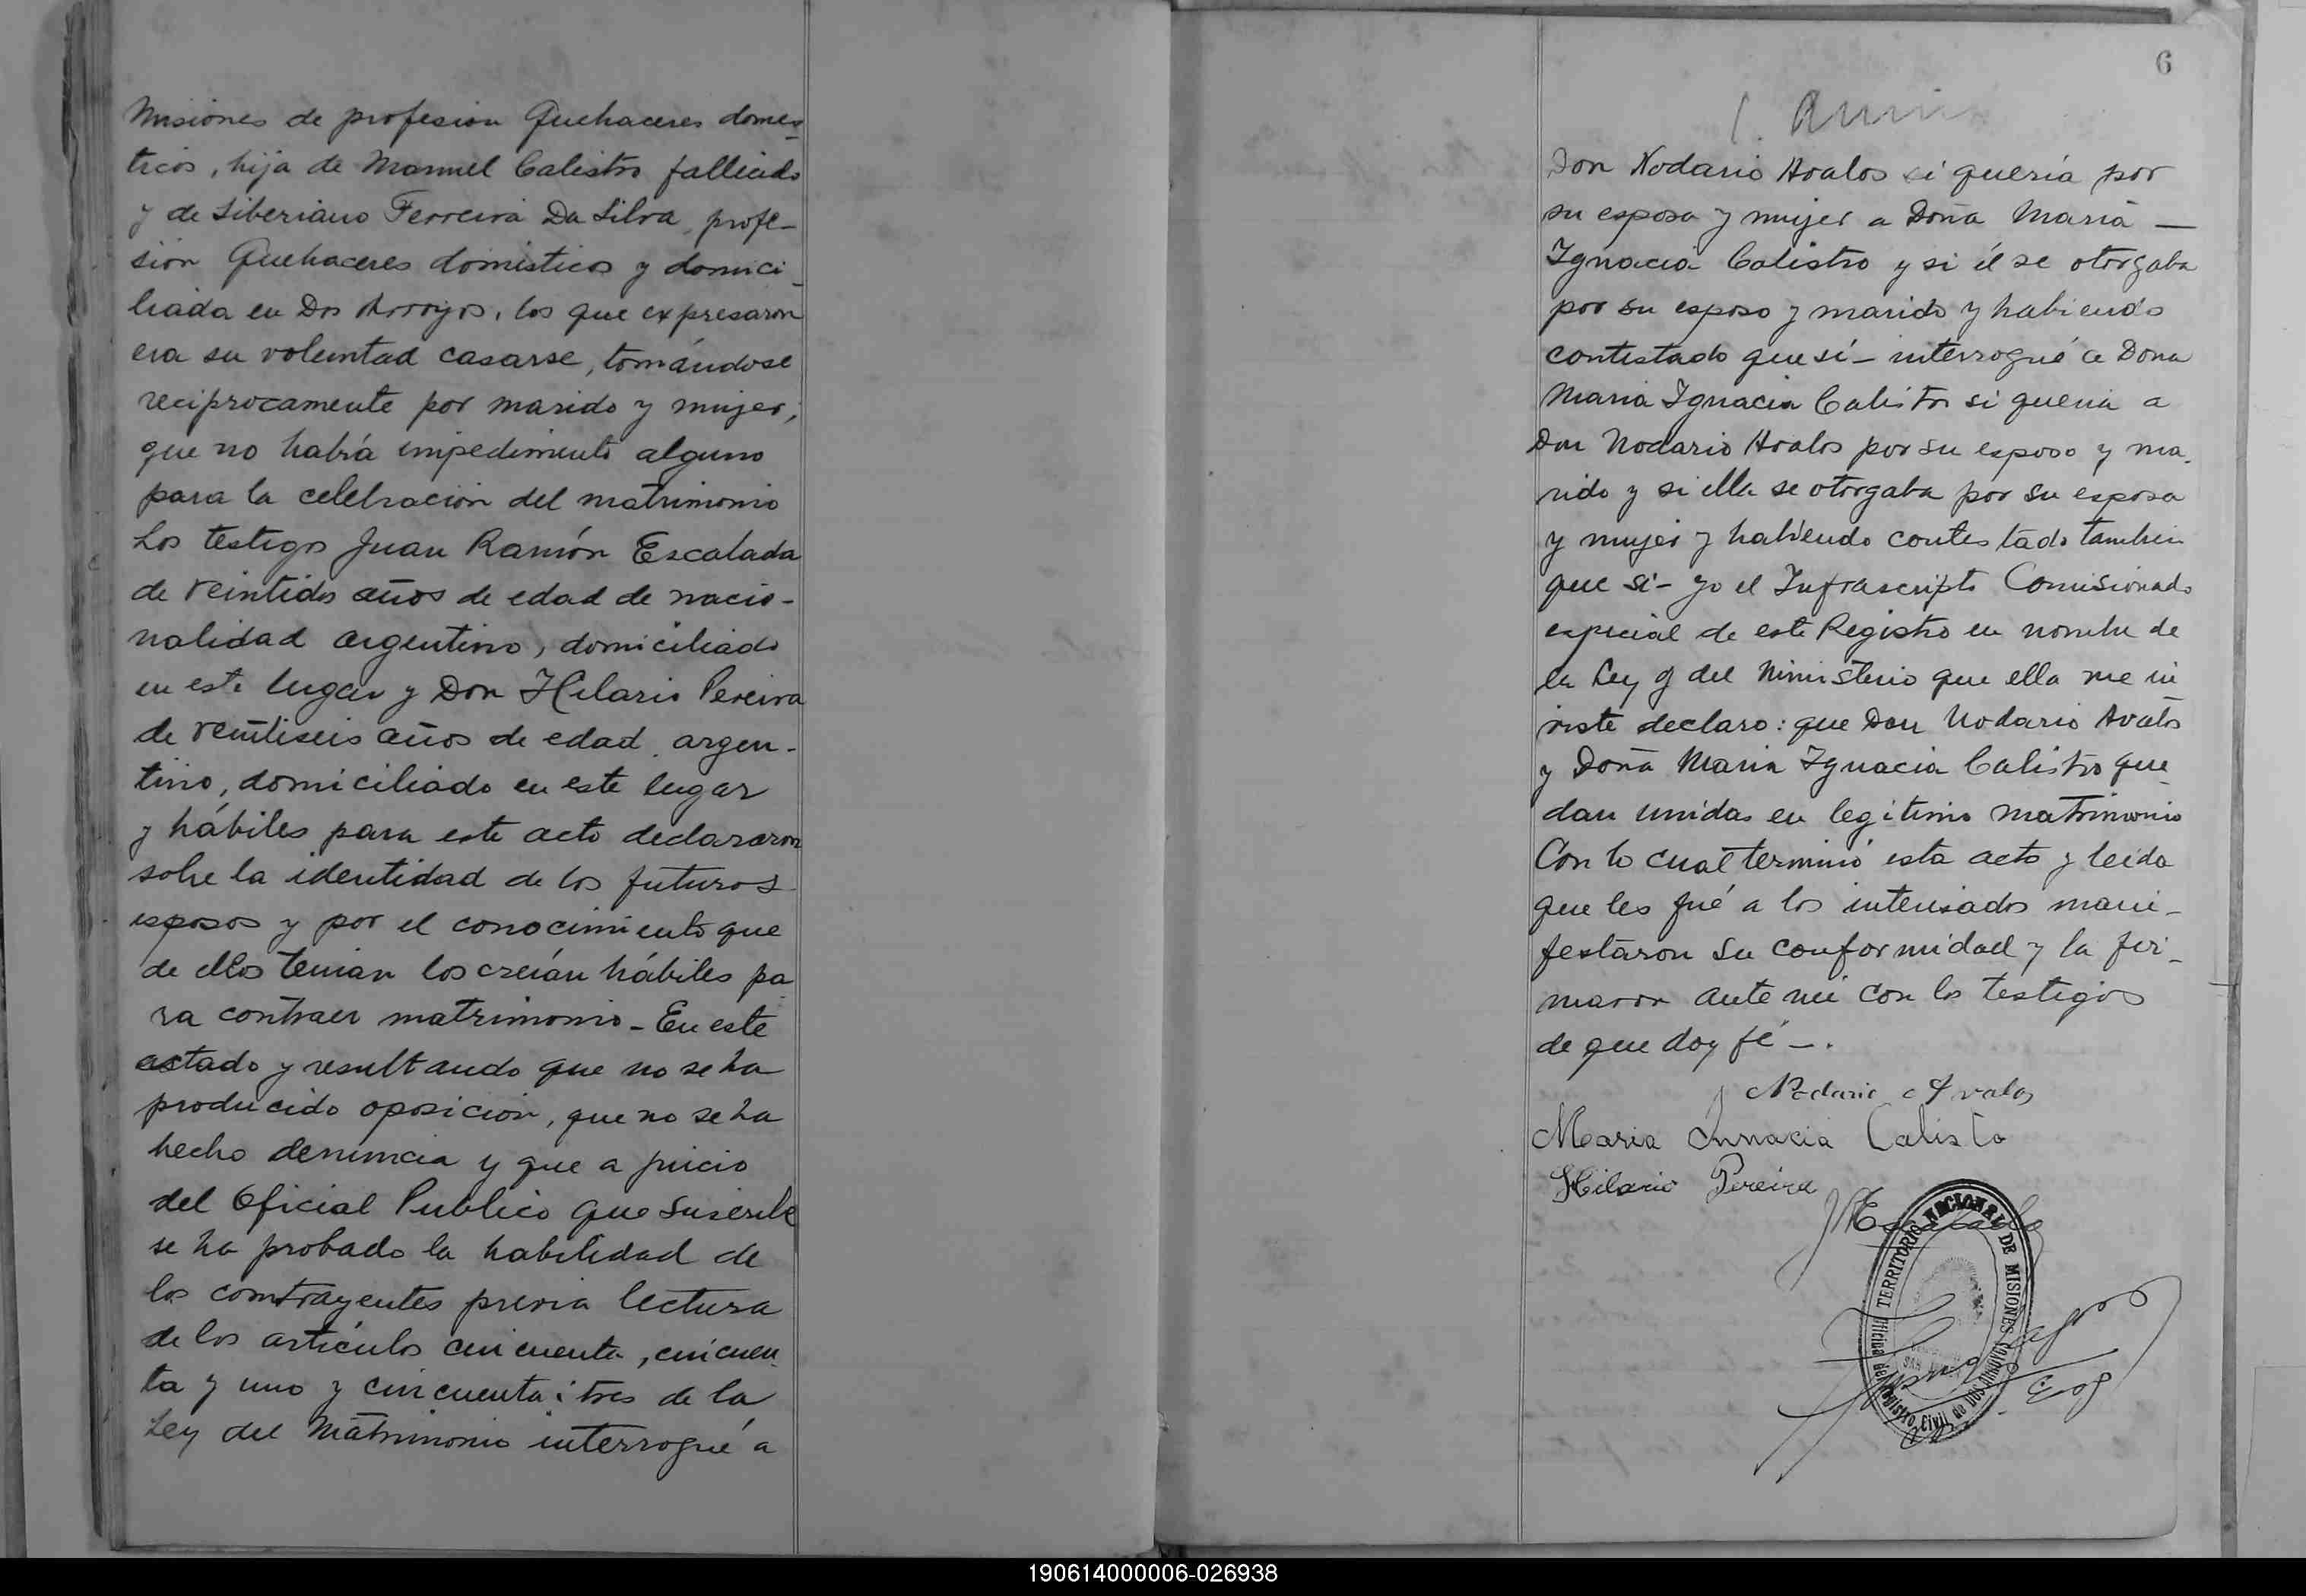 Misiones de profesion Quehaceres domes
ticos, hija de Manuel Calistro fallecido
y de Liberiano Ferreira Da Silva, profe-
sion Quehaceres domésticos y domici
liada en Dos Arroyos, los que expresaron
era su voluntad casarse, tomándose
reciprocamente por marido y mujer;
que no había impedimento alguno
para la celebración del matrimonio
Los testigos Juan Ramón Escalada
de veintidos años de edad de nacio-
nalidad argentino, domiciliado
en este lugar y Don Hilario Pereira
de veintiseis años de edad, argen-
tino, domiciliado en este lugar
y hábiles para este acto declararon
sobre la identidad de los futuros
esposos y por el conocimiento que
de ellos tenian los creían hábiles pa
ra contraer matrimonio - En este
estado y resultando que no se ha
producido oposicion, que no se ha
hecho denuncia y que a juicio
del Oficial Publico que suscribe
se ha probado la habilidad de
los contrayentes previa lectura
de los artículos cincuenta, cincuen
ta y uno y cincuenta i tres de la
Ley del Matrimonio interrogué a
6
Don Nodario Avalos si quería por
su esposa y mujer a Doña Maria —
Ignacia Calistro y si él se otorgaba
por su esposo y marido y habiendo
contestado que sí - interrogué a Dona
Maria Ignacia Calistro si queria a
Don Nodario Avalos por su esposo y ma-
rido y si ella se otorgaba por su esposa
y mujer y habiendo contestado tambien
que sí - yo el Infrascripto Comisionado
especial de este Registro en nombre de
la Ley y del Ministerio que ella me in
viste declaro: que Don Nodario Avalos
y Doña Maria Ignacia Calistro que
dan unidos en legitimo matrimonio
Con lo cual terminó esta acto y leida
que les fué a los interesados mani-
festaron su conformidad y la fir-
maron ante mi con los testigos
de que doy fé -.
Nodario Avalos
Maria Innacia Calisto
Hilario Pereira
JREscalada
TERRITORIO NACIONAL DE MISIONES
Oficina del Registro Civil de Dos Arroyos
190614000006-026938